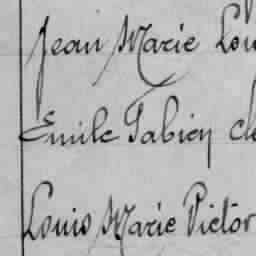 Jean Marie Lou
Emile Fabien
Louis Marie Victor